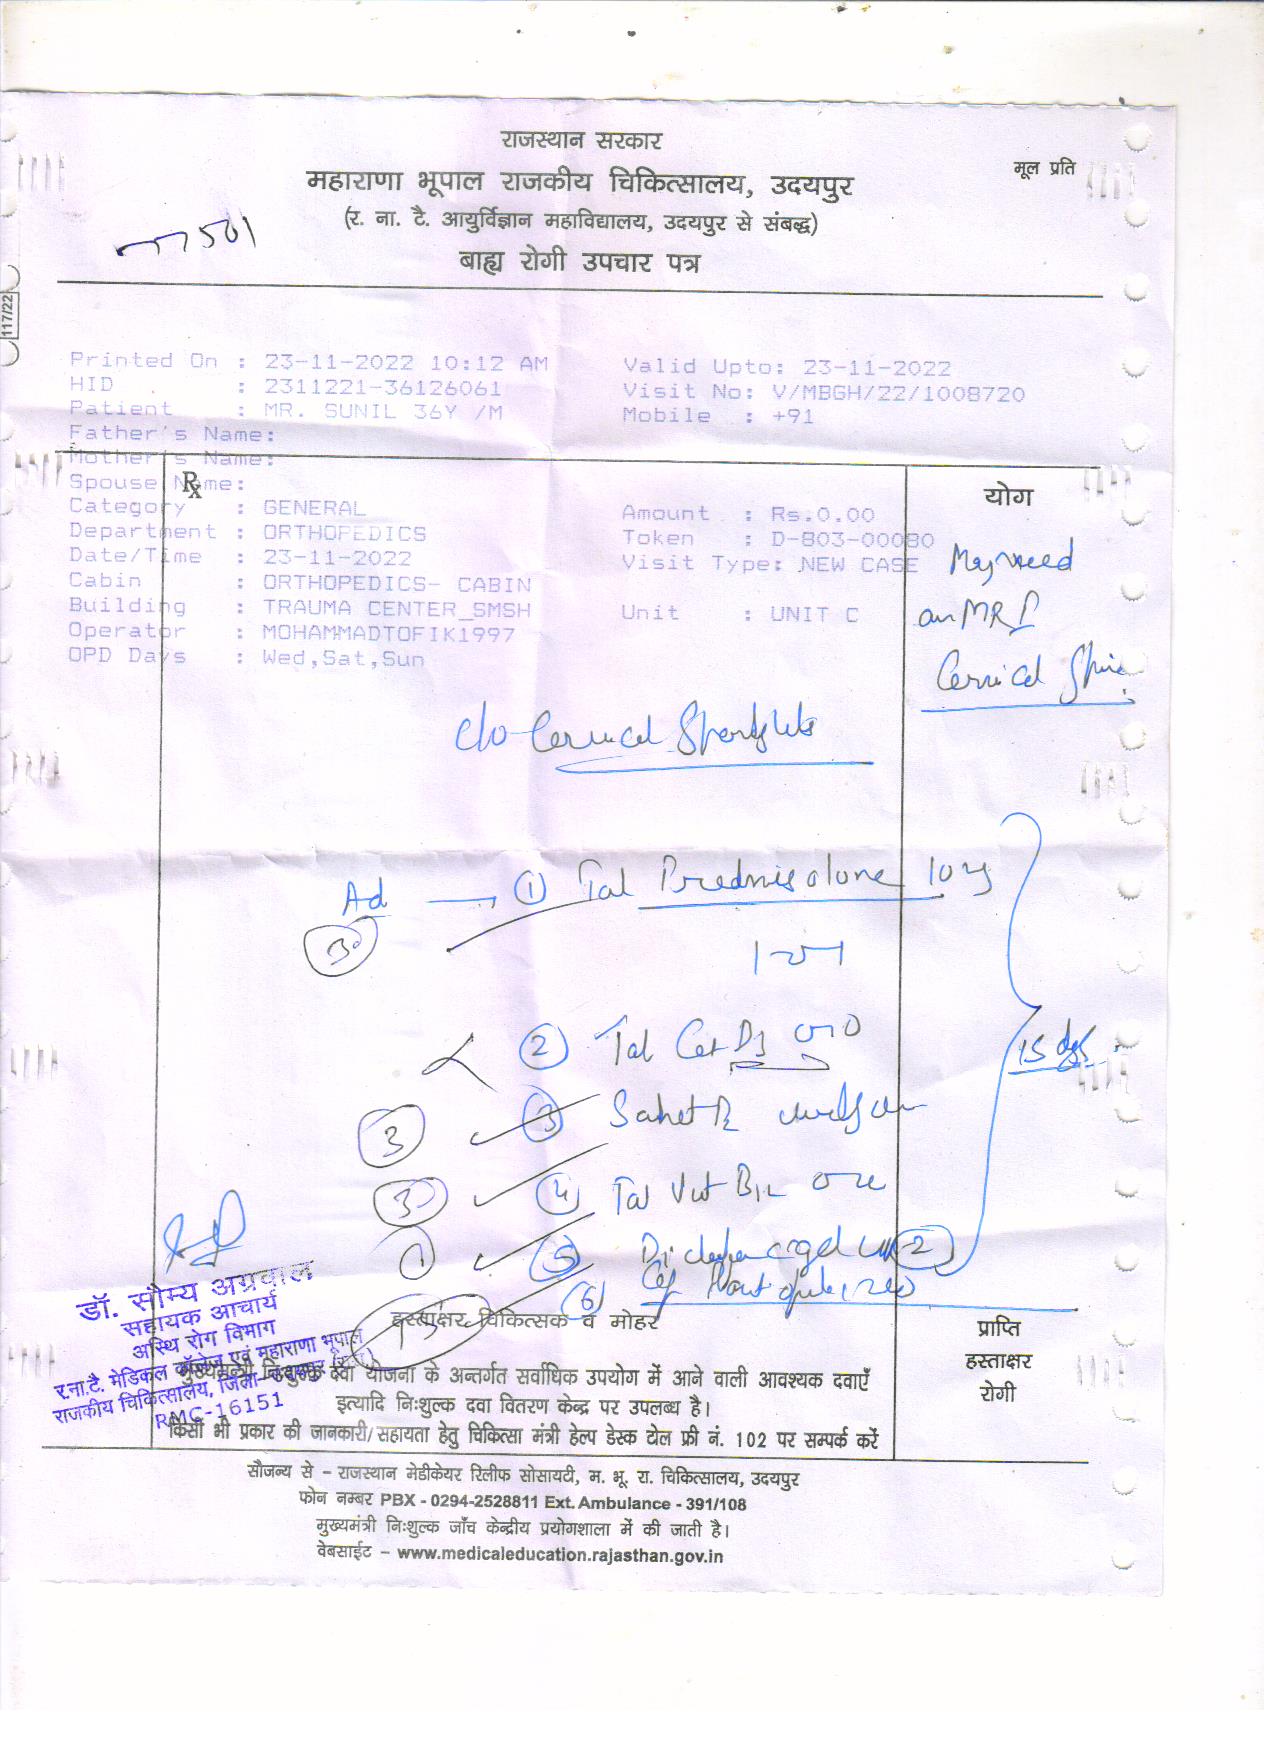 राजस्थान सरकार
मूल प्रति
महाराणा भूपाल राजकीय चिकित्सालय, उदयपुर
(र. ना. टै. आयुर्विज्ञान महाविद्यालय, उदयपुर से संबद्ध)
बाह्य रोगी उपचार पत्र
117/22
Printed On : 23-11-2022 10:12 AM
Valid Upto: 23-11-2022
HID : 2311221-36126061
Visit No: V/MBGH/22/1008720
Patient : MR. SUNIL 36Y /M
Mobile : +91
Father's Name:
Mother's Name:
Spouse Name:
Rx
योग
Category : GENERAL
Amount : Rs.0.00
Department : ORTHOPEDICS
Token : D-803-00080
Date/Time : 23-11-2022
Visit Type: NEW CASE
Cabin : ORTHOPEDICS- CABIN
Building : TRAUMA CENTER_SMSH
Unit : UNIT C
Operator : MOHAMMADTOFIK1997
OPD Days : Wed,Sat,Sun
May need
an MRI
Cervical Spine
c/o Cervical
Ad → ① Tab Prednisolone 10
② Tab
15 days
3 ③
3 ④ Tab Vit B12
① ⑤ gel
⑥
डॉ. सौम्य अग्रवाल
सहायक आचार्य
अस्थि रोग विभाग
र.ना.टै. मेडिकल कॉलेज एवं महाराणा भूपाल
राजकीय चिकित्सालय, जिला-
RMC-16151
हस्ताक्षर चिकित्सक व मोहर
प्राप्ति
हस्ताक्षर
रोगी
मुख्यमंत्री निःशुल्क दवा योजना के अन्तर्गत सर्वाधिक उपयोग में आने वाली आवश्यक दवाएँ
इत्यादि निःशुल्क दवा वितरण केन्द्र पर उपलब्ध है।
किसी भी प्रकार की जानकारी/सहायता हेतु चिकित्सा मंत्री हेल्प डेस्क टोल फ्री नं. 102 पर सम्पर्क करें
सौजन्य से – राजस्थान मेडीकेयर रिलीफ सोसायटी, म. भू. रा. चिकित्सालय, उदयपुर
फोन नम्बर PBX - 0294-2528811 Ext. Ambulance - 391/108
मुख्यमंत्री निःशुल्क जाँच केन्द्रीय प्रयोगशाला में की जाती है।
वेबसाईट – www.medicaleducation.rajasthan.gov.in